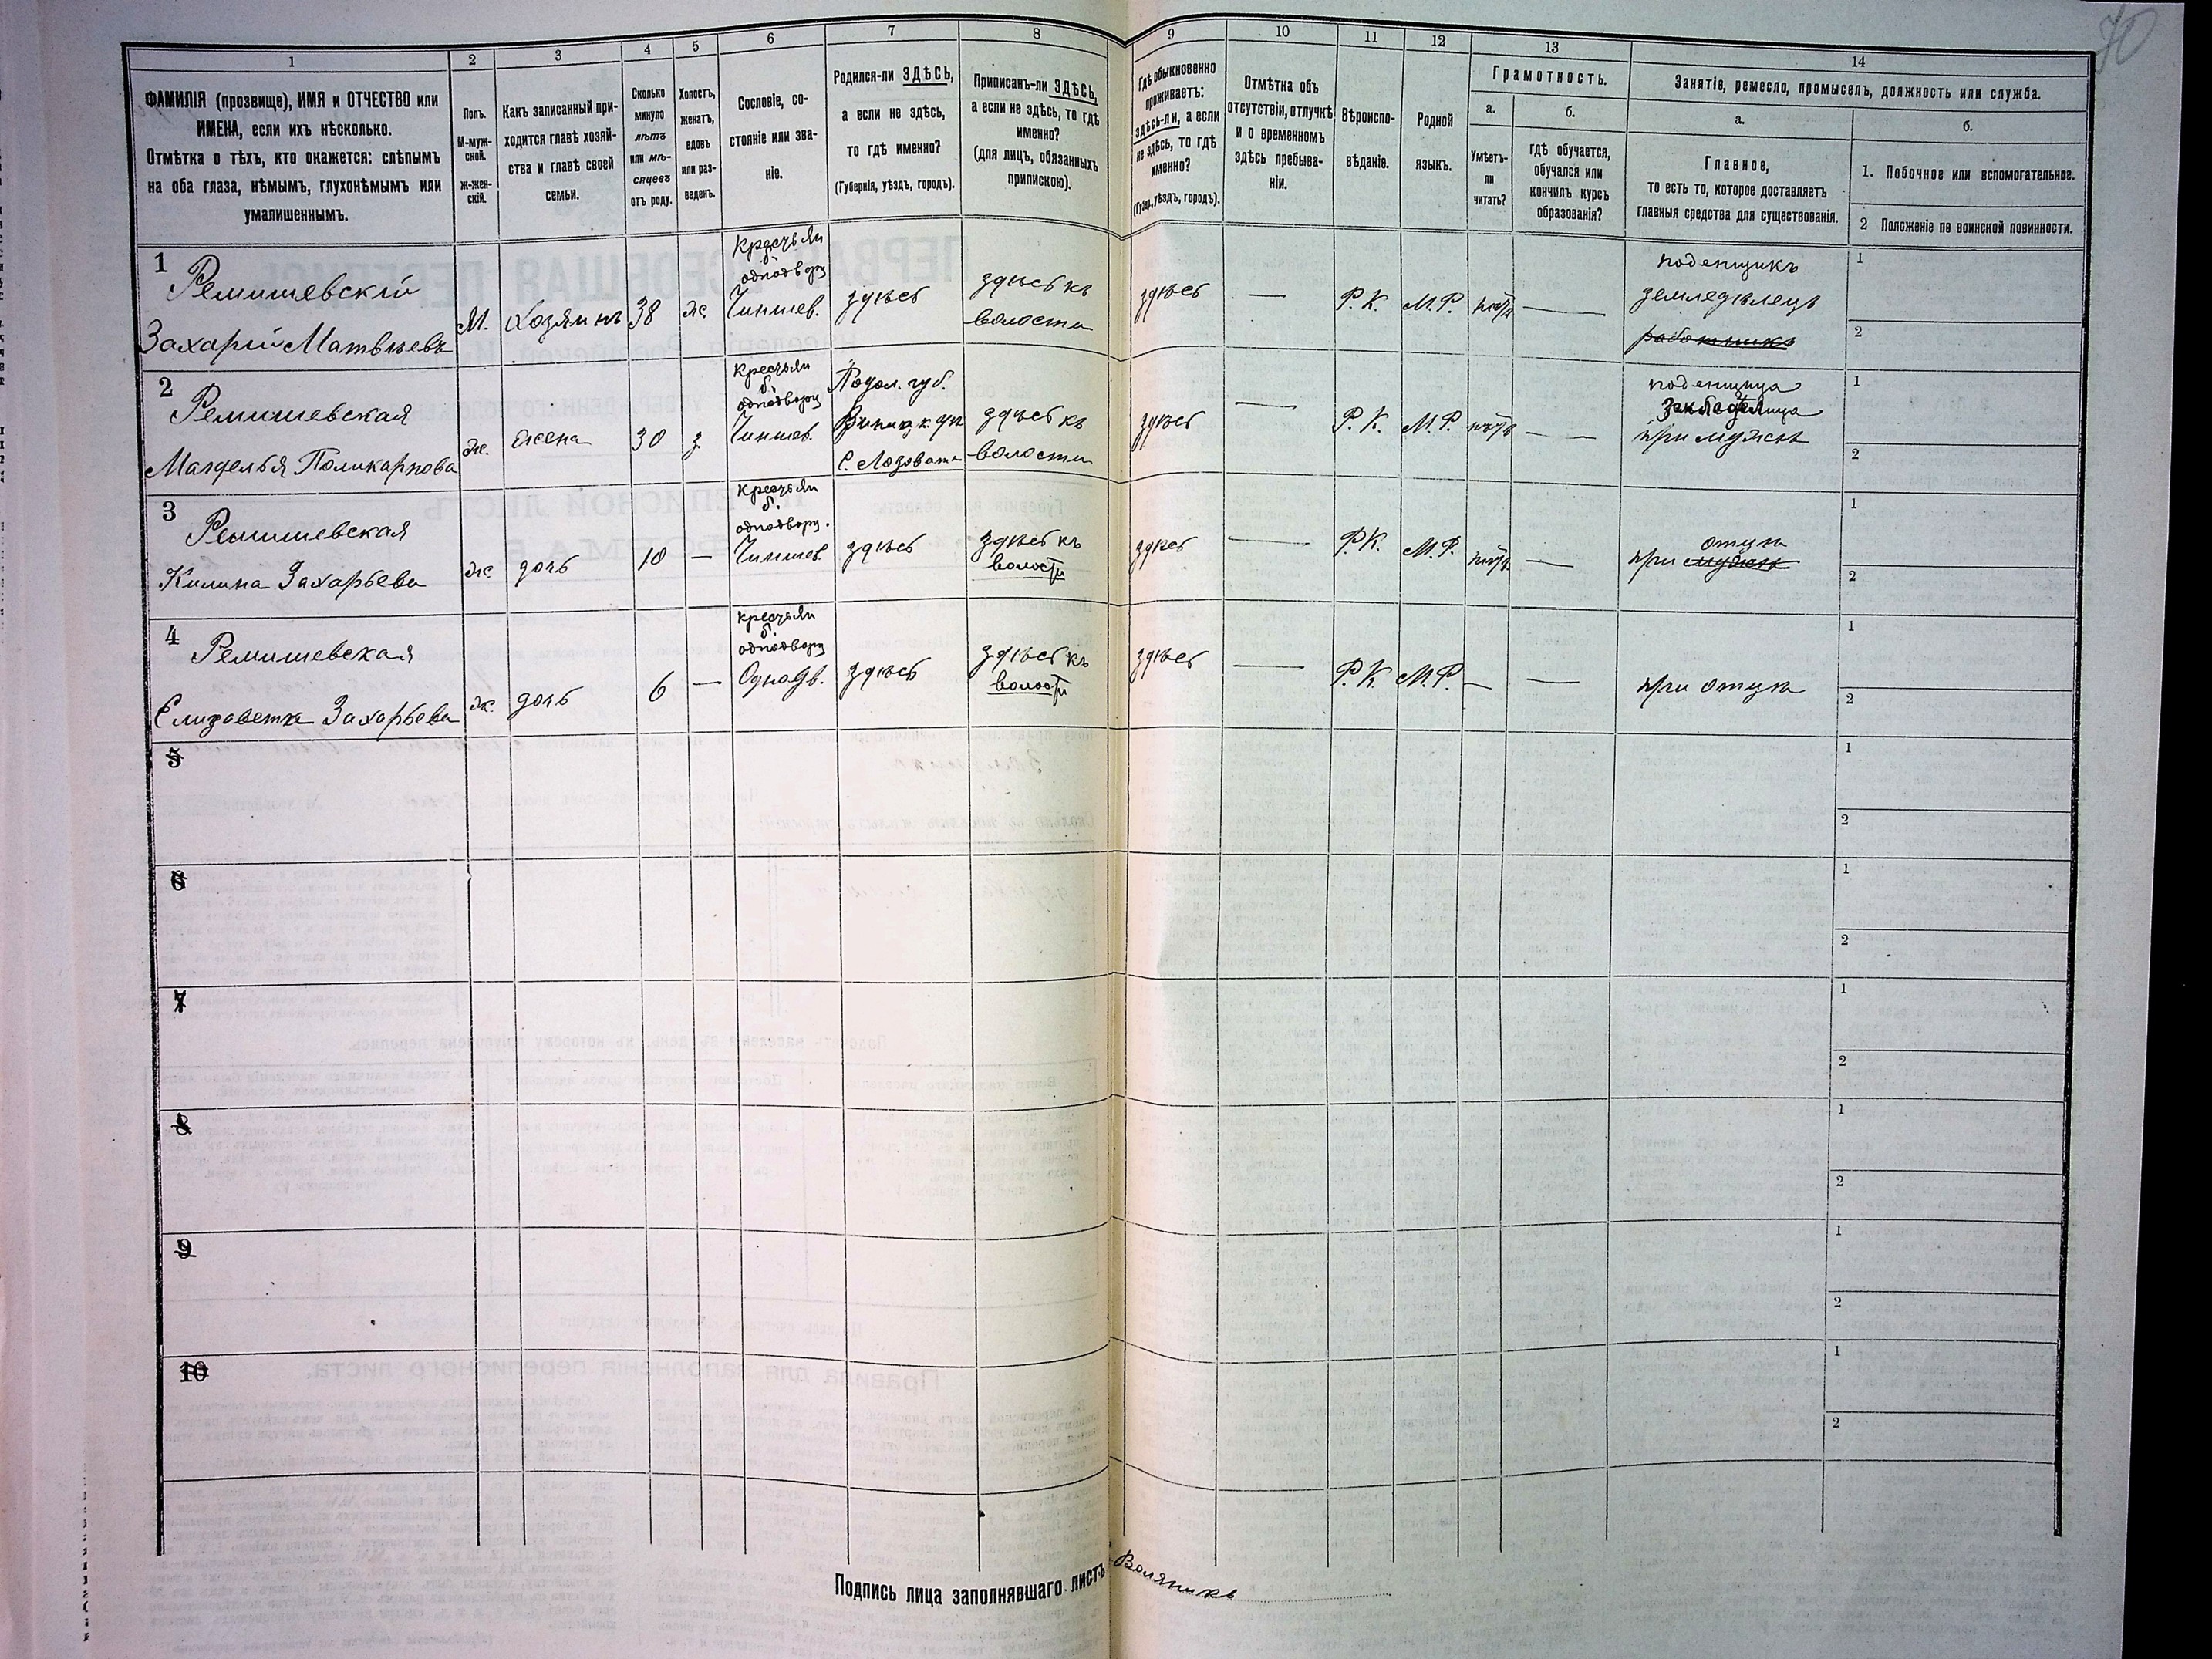 70
1
2
3
4
5
6
7
8
9
10
11
12
13
14
ФАМИЛІЯ (прозвище), ИМЯ и ОТЧЕСТВО или
ИМЕНА, если ихъ нѣсколько.
Отмѣтка о тѣхъ, кто окажется: слѣпымъ
на оба глаза, нѣмымъ, глухонѣмымъ или
умалишеннымъ.
Полъ.
М-муж-
ской.
ж-жен-
скій.
Какъ записанный при-
ходится главѣ хозяй-
ства и главѣ своей
семьи.
Сколько
минуло
лѣтъ
или мѣ-
сяцевъ
отъ роду.
Холостъ,
женатъ,
вдовъ
или раз-
веденъ.
Сословіе, со-
стояніе или зва-
ніе.
Родился-ли ЗДѢСЬ,
а если не здѣсь,
то гдѣ именно?
(Губернія, уѣздъ, городъ).
Приписанъ-ли ЗДѢСЬ,
а если не здѣсь, то гдѣ
именно?
(для лицъ, обязанныхъ
припискою).
Гдѣ обыкновенно
проживаетъ:
здѣсь-ли, а если
не здѣсь, то гдѣ
именно?
(Губер., уѣздъ, городъ).
Отмѣтка объ
отсутствіи, отлучкѣ
и о временномъ
здѣсь пребыва-
ніи.
Вѣроиспо-
вѣданіе.
Родной
языкъ.
Грамотность.
а.
Умѣетъ-
ли
читать?
б.
гдѣ обучается,
обучался или
кончилъ курсъ
образованія?
Занятіе, ремесло, промыселъ, должность или служба.
а.
Главное,
то есть то, которое доставляетъ
главныя средства для существованія.
б.
1. Побочное или вспомогательное.
2 Положеніе по воинской повинности.
1
Ремишевскій
Захарій Матвѣевъ
М.
Хозяинъ
38
ж.
Кресть ян
б.
однодворц
Чиншев.
здѣсь
здѣсь къ
волости
здѣсь
—
Р. К.
М. Р.
нѣтъ
—
поденщикъ
земледѣлецъ
работникъ
1
2
2
Ремишевская
Магдельъя Поликарпова
ж.
жена
30
з
кресть ян
б.
однодворц
Чиншев.
Подол. губ.
Винницк. уѣз
с. Лозовата
здѣсь къ
волости
здѣсь
—
Р. К.
М. Р.
нѣтъ
—
поденщица
при мужѣ
1
2
3
Ремишевская
Килина Захарьева
ж.
дочь
10
—
кресть ян
б.
однодворц.
Чиншев.
здѣсь
здѣсь къ
волости
здѣсь
—
Р. К.
М. Р.
нѣтъ
—
отцѣ
при мужѣ
1
2
4
Ремишевская
Елизавета Захарьева
ж.
дочь
6
—
кресть ян
б.
однодворц
Однодв.
здѣсь
здѣсь къ
волости
здѣсь
—
Р. К.
М. Р.
—
—
при отцѣ
1
2
5
1
2
6
1
2
7
1
2
8
1
2
9
1
2
10
1
2
Подпись лица заполнявшаго листъ